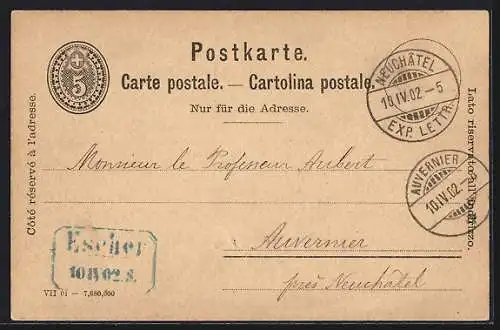 Postkarte.
Carte postale. — Cartolina postale.
Nur für die Adresse.
5
Côté réservé à l'adresse.
Lato riservato all'indirizzo.
NEUCHÂTEL
10.IV.02.–5
EXP. LETTR.
AUVERNIER
10.IV.02.
Monsieur le Professeur Aubert
Auvernier
près Neuchâtel
Escher
10 IV 02. S.
VII 01 — 7,680,000